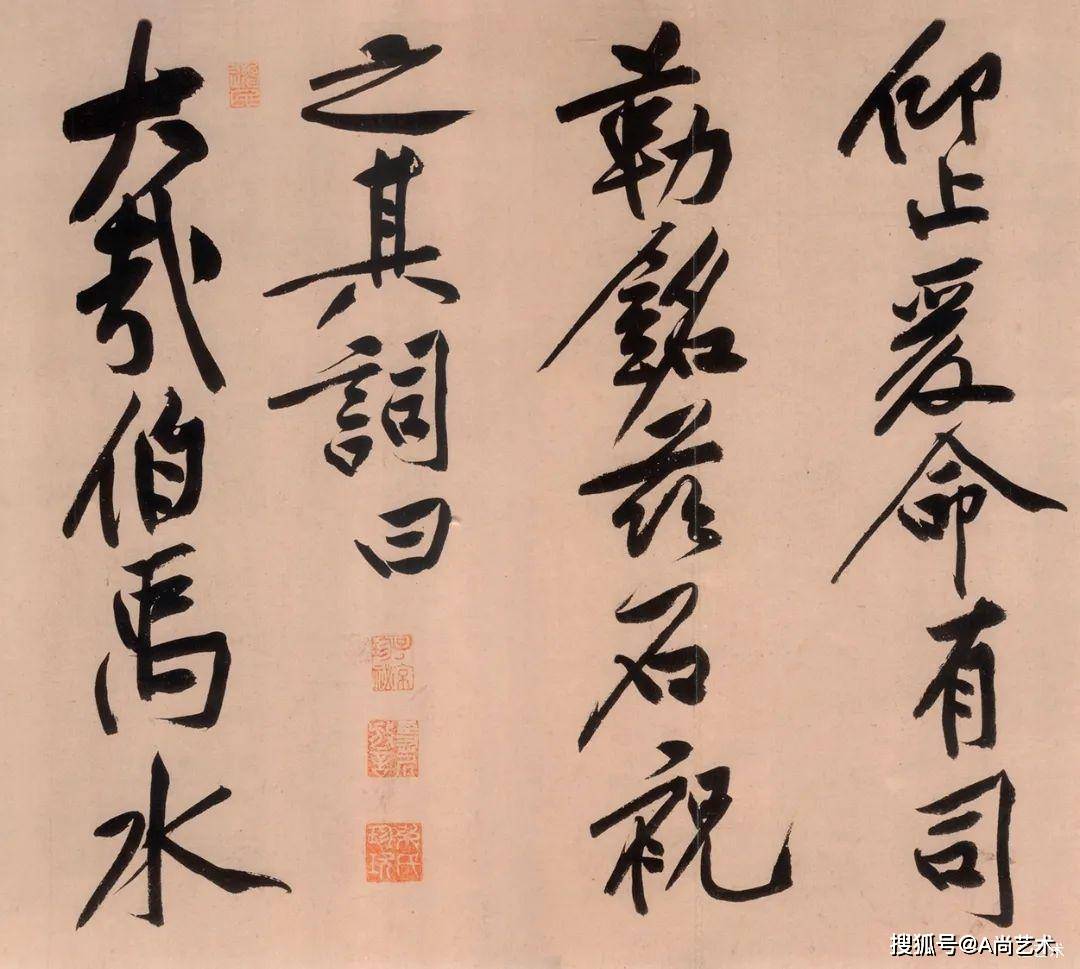 仰止爰命有司
勒銘茲石祝
之其詞曰
大哉伯禹水
搜狐号@A尚艺术